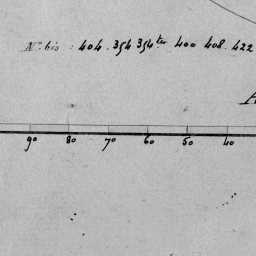 Nos bis : 404. 354 354ter 400 408. 422
A
90 80 70 60 50 40